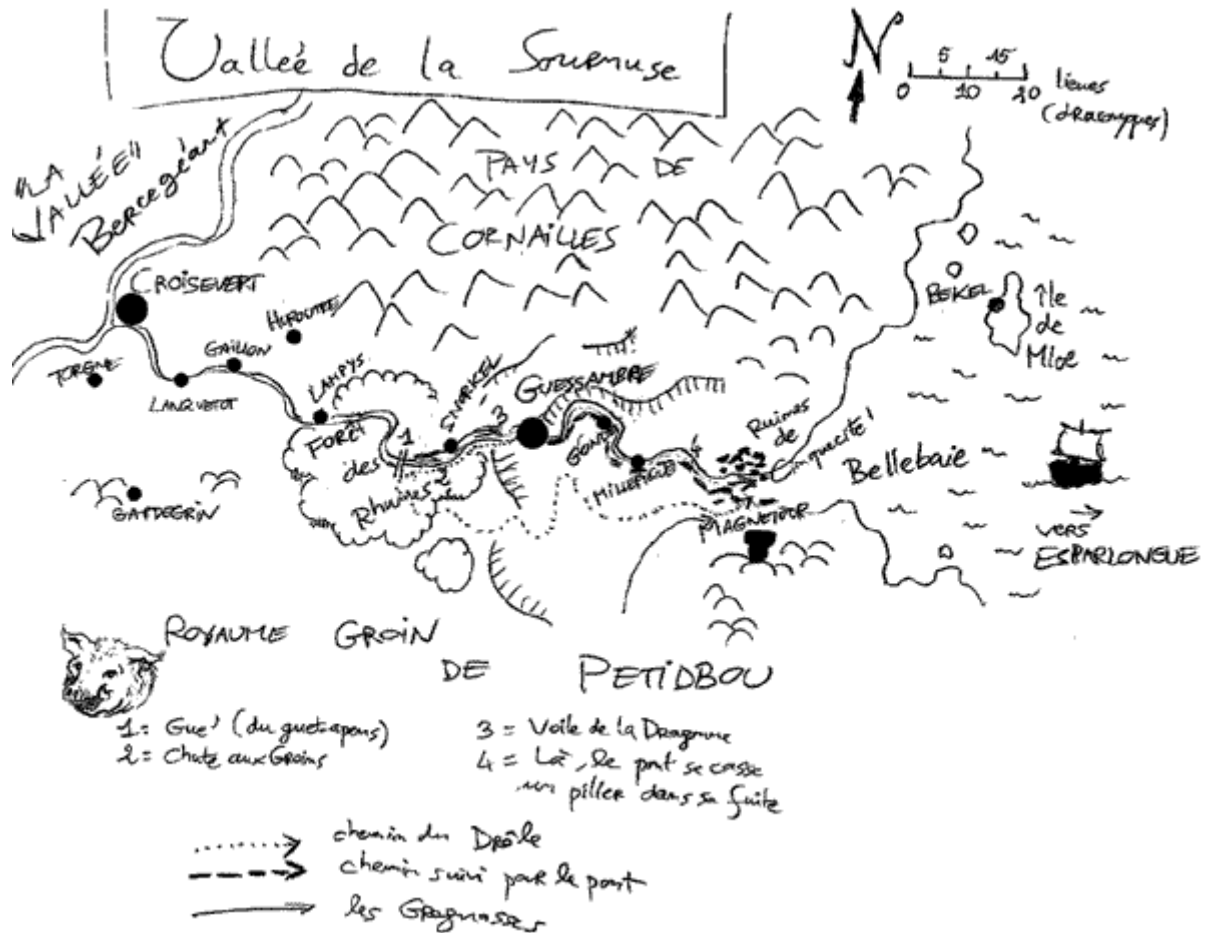 Valleé de la Sournuse
N
5 15
0 10 20
lieues
(draconyques)
"LA
VALLÉE"
Bercegéant
PAYS DE
CORNAILLES
CROISEVERT
HUROUTRE
BEKEL
île
de
Mloe
TORGNE
GAILLON
LANQUETOT
LAMPYS
SNORKEL
GUESSAMBRE
FORÊT
des
Rhuines
1
2
3
4
GONT
MILLEFIGUE
Ruines
de
Cinquecité!
Bellebaie
GARDEGRIN
MAGNETOUR
vers
ESPARLONGUE
ROYAUME GROIN
DE PETIDBOU
1 = Gué (du guet-apens)
2 = Chute aux Groins
3 = Voile de la Dragonne
4 = Là, le pont se casse
un pilier dans sa fuite
chemin du Drôle
chemin suivi par le pont
les Gragnasses